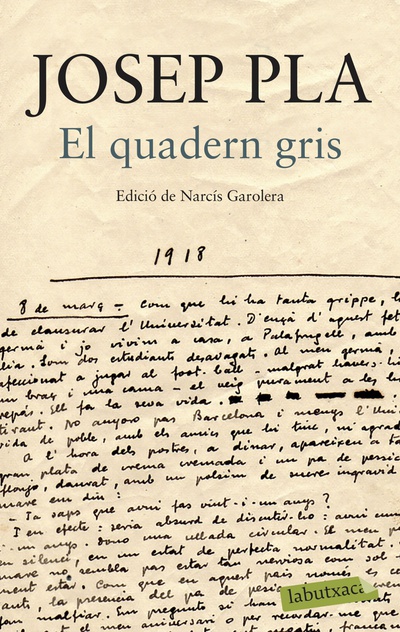 JOSEP PLA
El quadern gris
Edició de Narcís Garolera
1918
8 de març — Com que hi ha tanta grippe, h
de clausurar l'Universitat. D'ençà d'aquest fet
germà i jo vivim a casa, a Palafrugell, amb
lia. Som dos estudiants desvagats. Al meu germà,
afeccionat a jugar al foot-ball – malgrat haver-hi
un braç i una cama – el veig purament a les h
repàs. Ell fa la seva vida.
tirant. No anyoro pas Barcelona i menys l'Uni
vida de poble, amb els amics que hi tinc, m'agrad
A l'hora dels postres, a dinar, apareixen a ta
gran plata de crema cremada i un pa de pessic
flonjo, daurat, amb un polsim de sucre ingravid
mare em diu:
— Ja saps que avui fas vint-i-un anys?
I en efecte: seria absurd de discutir-ho: avui
i-un anys. Dono una ullada circular. El meu p
en silenci, en un estat de perfecta normalitat.
mare no sembla pas estar tan neviosa com sol
ment estar. Com que en aquest país només es ce
tants, la presencia del pa de
fan malfiar. Em pregunto si han
el meu aniversari o per recordar-me que
labutxaca